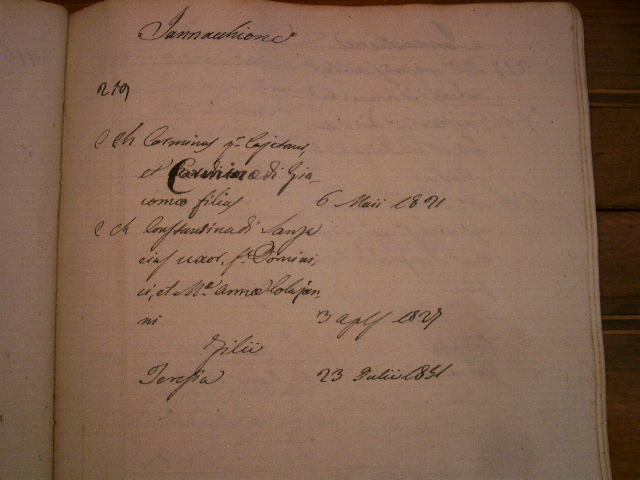 Jannacchione
219
C ch Carminus q.m Cajetani,
et Carolinæ di Gia-
comæ filius 6 Maii 1821
C ch Constantina di Sanza
ejus uxor, f.a Domini
ci, et M.a Annæ Colajan
ni 3 aplis 1827
Filii
Teresia 23 Julii 1851